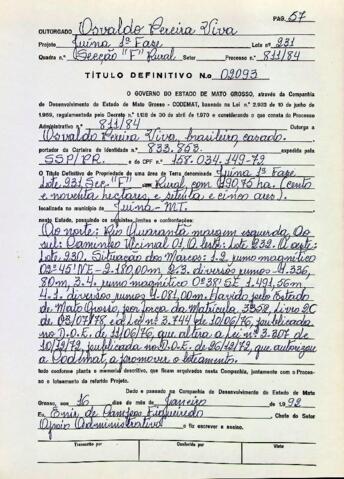 PAG. 57
OUTORGADO Osvaldo Pereira Viva
Projeto Juína 1ª Fase Lote nº 231
Quadra n.º Secção "F" Rural Setor Processo n.º 811/84
TÍTULO DEFINITIVO N.o 02093
O GOVERNO DO ESTADO DE MATO GROSSO, através da Companhia
de Desenvolvimento do Estado de Mato Grosso - CODEMAT, baseado na Lei n.º 2.903 de 10 de junho de
1969, regulamentado pelo Decreto n.º 1128 de 30 de abril de 1970 e considerando o que consta do Processo
Administrativo n.º 811/84 Outorga a
Osvaldo Pereira Viva, brasileiro, casado.
portador da Carteira de Identidade n.º 833.853. expedida pela
SSP/PR. e do CPF n.º 158.034.149-72
O Título Definitivo de Propriedade de uma área de Terra denominada Juína 1ª Fase
Lote 231 Sec. "F" Rural, com 190,75 ha. (cento
e noventa hectares, e setenta e cinco ares).
localizada no município de Juína - MT.
neste Estado, possuindo os seguintes limites e confrontações:
Ao norte: Rio Quarantã margem esquerda, Ao
sul: Caminho Vicinal 01, O leste: Lote 232. O oeste:
Lote 230. Situação dos Marcos: 1.2. rumo magnético
02º45' NE - 2.180,00m, 2.3. diversos rumos 1.336,
80m, 3.4. rumo magnético 0º38'5E 1.491,56m
4.1. diversos rumos 1.081,00m. Havido pelo Estado
de Mato Grosso, por força da Matrícula 3358, Livro 2C
de 03/07/78, a Lei nº 3.744 de 10/06/76, publicada
no D.O.E. de 11/06/76, que altera a Lei nº 3.307 de
10/12/72, publicada no D.O.E. de 26/12/72, que autorizou
a Codemat, a promover o loteamento.
tudo conforme planta e memorial descritivo, que ficam arquivados nesta Companhia, juntamente com o Proces-
so e loteamento do referido Projeto.
Dado e passado na Companhia de Desenvolvimento do Estado de Mato
Grosso, aos 16 dias do mês de Janeiro de 1.992
Eu, Enir de Campos Figueiredo Chefe do Setor
Apoio Administrativo o fiz escrever e assino.
Transcrito por Conferido por Visto